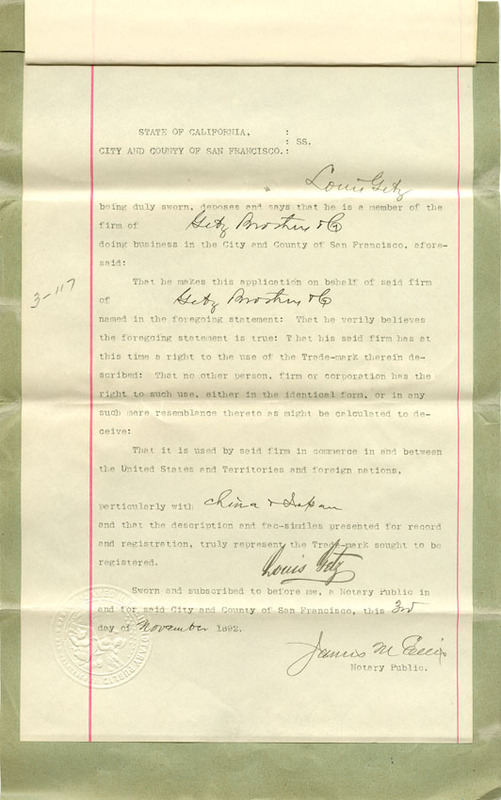 STATE OF CALIFORNIA, :
: SS.
CITY AND COUNTY OF SAN FRANCISCO.:
Louis Getz
being duly sworn, deposes and says that he is a member of the
firm of Getz Brothers & Co
doing business in the City and County of San Francisco, afore-
said:
That he makes this application on behalf of said firm
of Getz Brothers & Co
3-117
named in the foregoing statement: That he verily believes
the foregoing statement is true: That his said firm has at
this time a right to the use of the Trade-mark therein de-
scribed: That no other person, firm or corporation has the
right to such use, either in the identical form, or in any
such mere resemblance thereto as might be calculated to de-
ceive:
That it is used by said firm in commerce in and between
the United States and Territories and foreign nations,
particularly with China & Japan
and that the description and fac-similes presented for record
and registration, truly represent the Trade-mark sought to be
registered.
Louis Getz
Sworn and subscribed to before me, a Notary Public in
and for said City and County of San Francisco, this 3rd
day of November 1892.
James M Ellis
Notary Public.